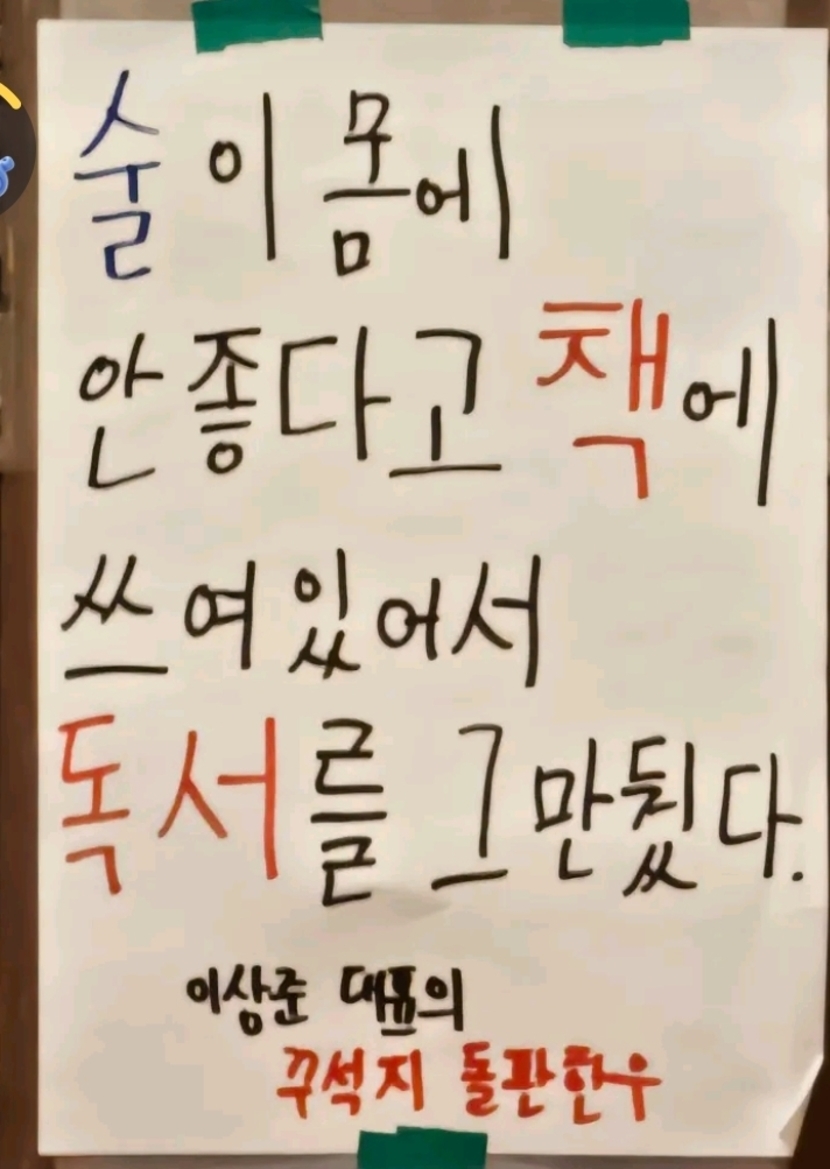 술이 몸에
안좋다고 책에
쓰여있어서
독서를 그만뒀다.
이상준 대표의
꾸석지 돌판한우